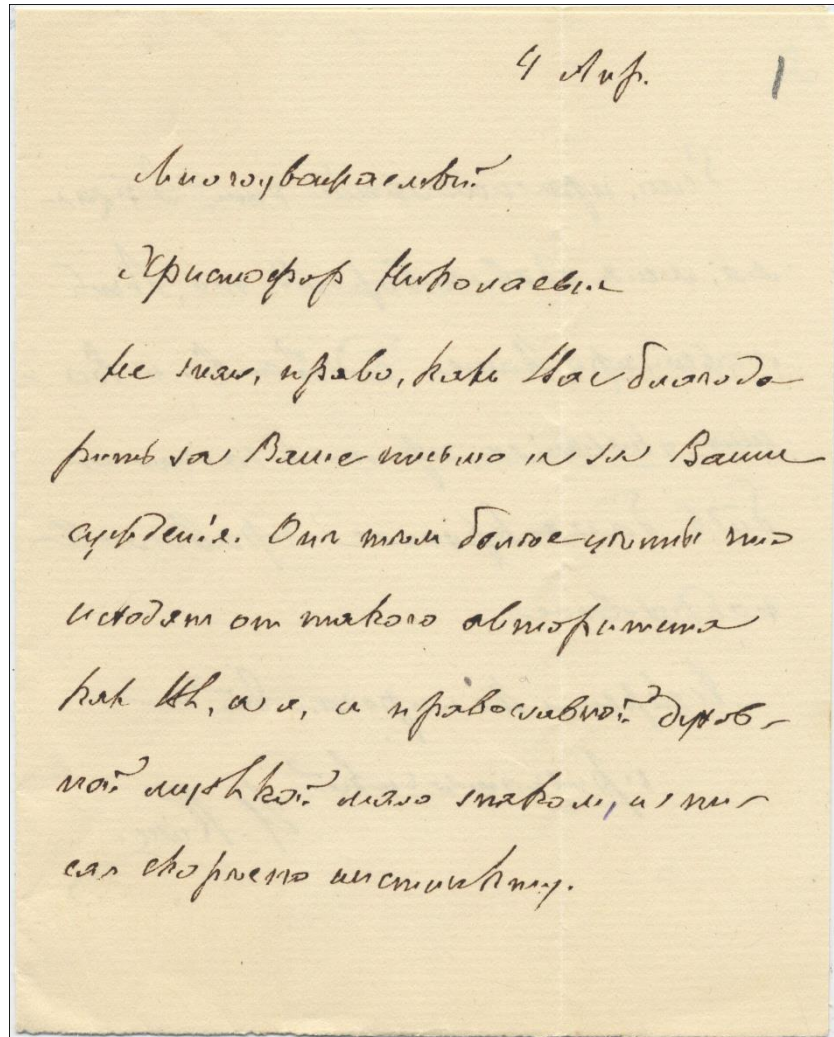 4 Апр.
1
Многоуважаемый
Христофор Николаевич
Не знаю, право, какъ Вас благода
рить за Ваше письмо и за Ваши
суждения. Они тем более ценны что
исходят от такого авторитета
как Вы, а я, с православной духов-
ной музыкой мало знаком, и пи-
сал скорее по инстинкту.